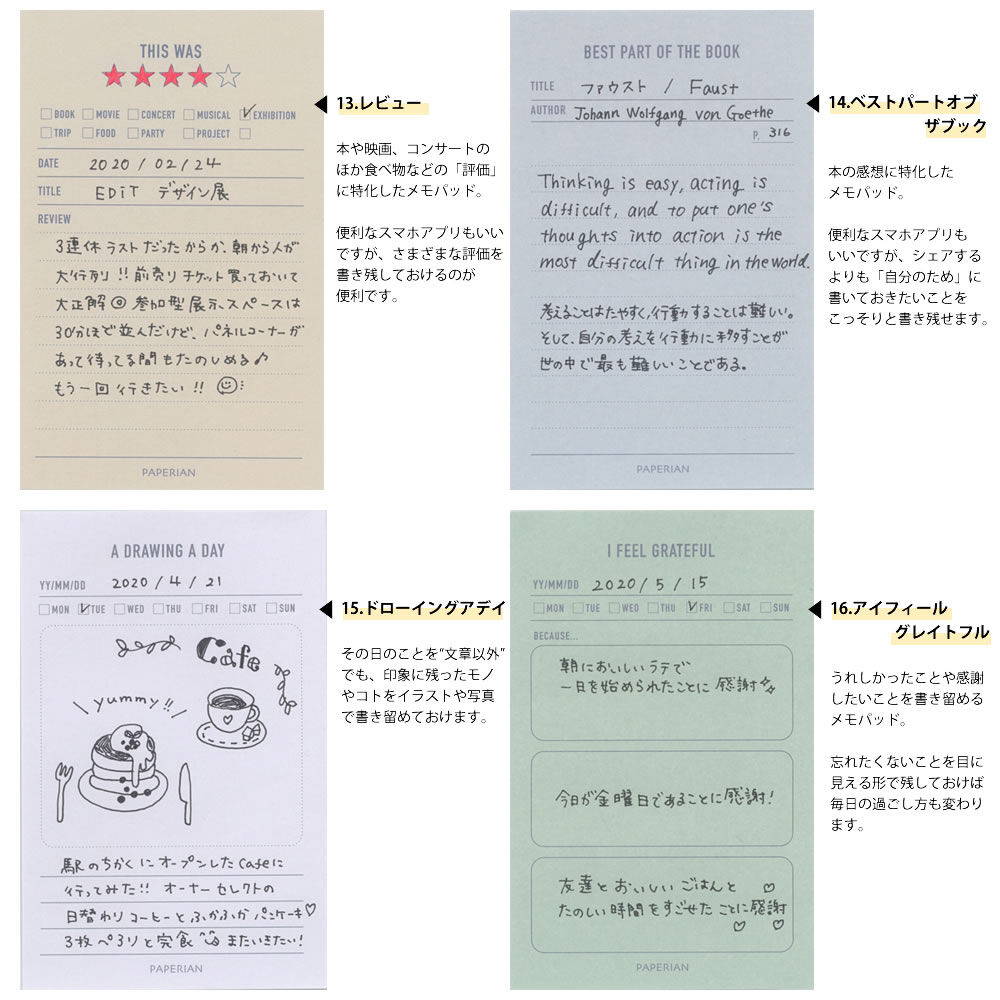 THIS WAS
BOOK MOVIE CONCERT MUSICAL EXHIBITION
TRIP FOOD PARTY PROJECT
DATE 2020/02/24
TITLE EDiT デザイン展
REVIEW
3連休ラストだったからか、朝から人が
大行列!!前売りチケット買っておいて
大正解◎参加型展示スペースは
30分ほど並んだけど、パネルコーナーが
あって待ってる間もたのしめる♪
もう一回行きたい!!
PAPERIAN
13.レビュー
本や映画、コンサートの
ほか食べ物などの「評価」
に特化したメモパッド。
便利なスマホアプリもいい
ですが、さまざまな評価を
書き残しておけるのが
便利です。
BEST PART OF THE BOOK
TITLE ファウスト / Faust
AUTHOR Johann Wolfgang von Goethe
P. 316
Thinking is easy, acting is
difficult, and to put one's
thoughts into action is the
most difficult thing in the world.
考えることはたやすく、行動することは難しい。
そして、自分の考えを行動に移すことが
世の中で最も難しいことである。
PAPERIAN
14.ベストパートオブ
ザブック
本の感想に特化した
メモパッド。
便利なスマホアプリも
いいですが、シェアする
よりも「自分のため」に
書いておきたいことを
こっそりと書き残せます。
A DRAWING A DAY
YY/MM/DD 2020/4/21
MON TUE WED THU FRI SAT SUN
Cafe
yummy!!
駅のちかくにオープンしたCafeに
行ってみた!! オーナーセレクトの
日替わりコーヒーとふかふかパンケーキ♡
3枚ペろりと完食 またいきたい!
PAPERIAN
15.ドローイングアデイ
その日のことを“文章以外”
でも、印象に残ったモノ
やコトをイラストや写真
で書き留めておけます。
I FEEL GRATEFUL
YY/MM/DD 2020/5/15
MON TUE WED THU FRI SAT SUN
BECAUSE...
朝においしいラテで
一日を始められたことに感謝
今日が金曜日であることに感謝!
友達とおいしいごはんと
たのしい時間をすごせたことに感謝
PAPERIAN
16.アイフィール
グレイトフル
うれしかったことや感謝
したいことを書き留める
メモパッド。
忘れたくないことを目に
見える形で残しておけば
毎日の過ごし方も変わり
ます。